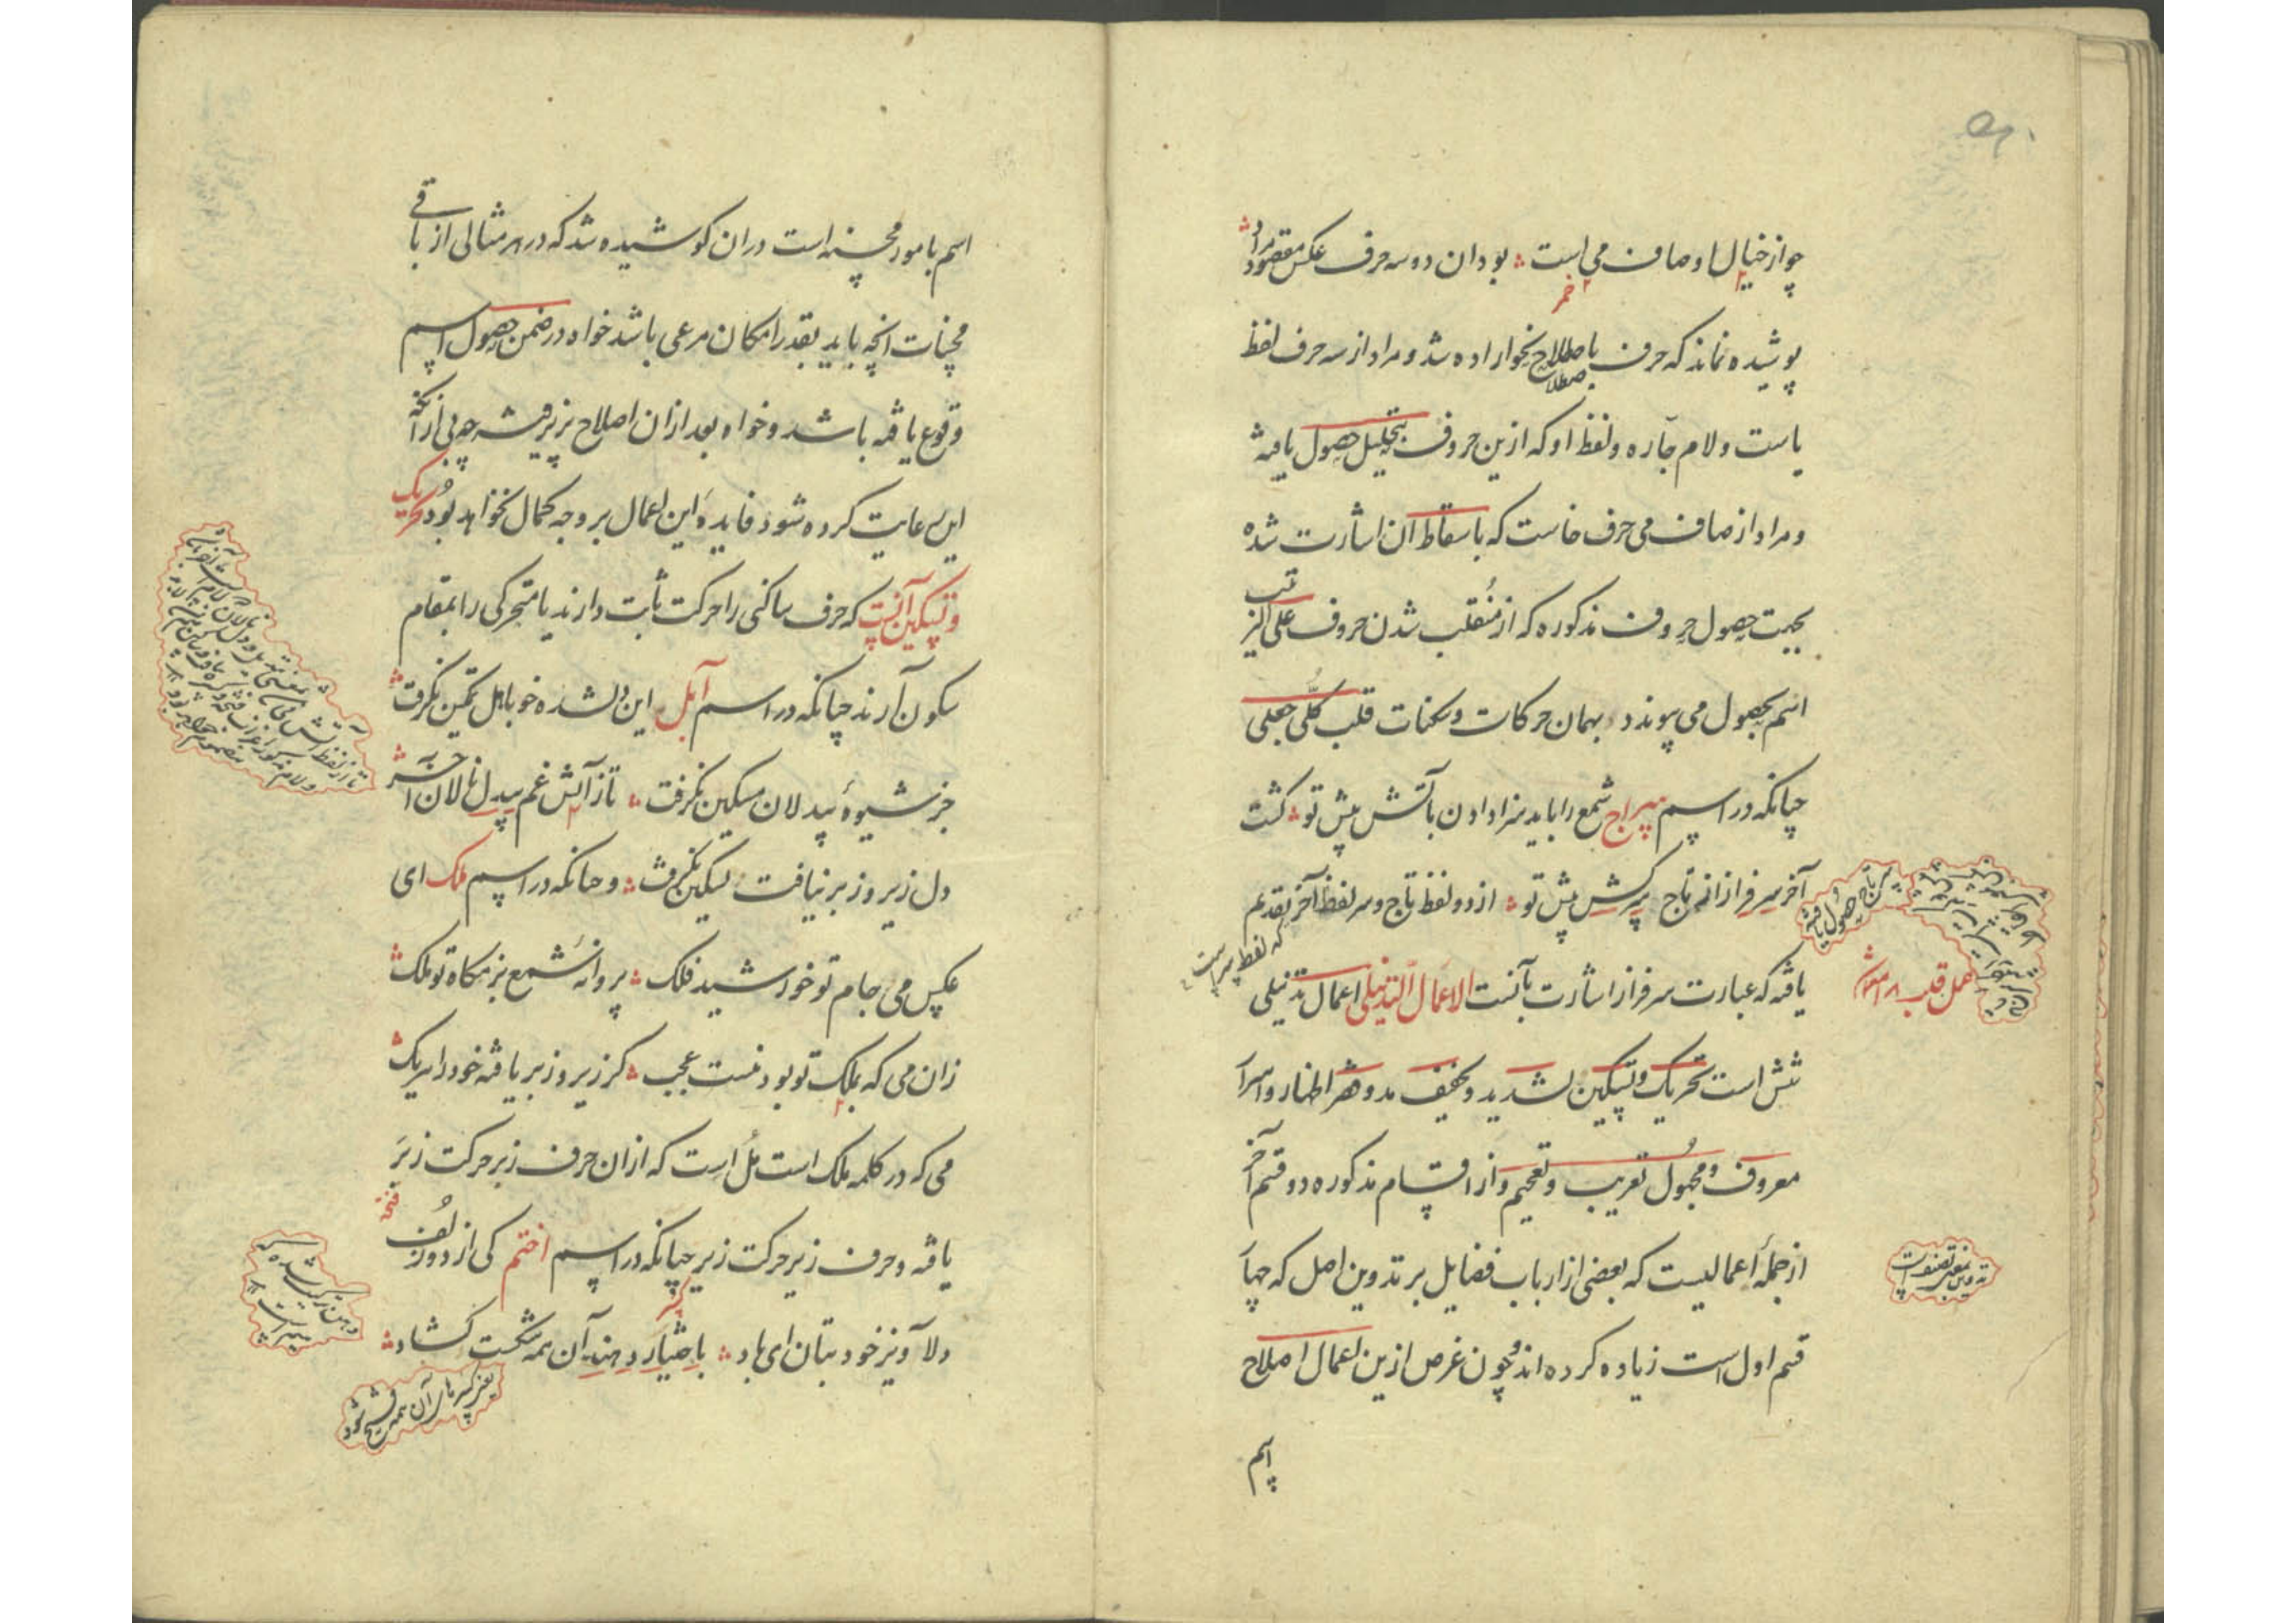 چو از خیال اوصاف می است بودان دو سه حرف عکس مقصود مراد
خمر
پوشیده نماند که حرف باصطلاح نحو اراده شد و مراد از سه حرف لفظ
یاست و لام جاره و لفظ او که ازین حروف بتحلیل حصول یافته
و مراد از صاف می حرف خاست که باسقاط آن اشارت شده
بجهت حصول حروف مذکوره که از منقلب شدن حروف علی الترتیب
اسم بحصول می پیوندد بهمان حرکات و سکنات قلب کلی جعلی
چنانکه در اسم سراج شمع را باید سزا دادن بآتش پیش تو کشت
آخر سرفراز از نه تاج سرکش پیش تو از دو لفظ تاج و سر لفظ آخر تقدیم
که لفظ سر است
یافته که عبارت سرفراز اشارت بآنست الاعمال التذییلی اعمال تذییلی
عمل قلب
شش است تحریک و تسکین تشدید و تخفیف مد و قصر اظهار و اسرار
معروف و مجهول تعریب و تعجیم و از اقسام مذکوره دو قسم آخر
از جمله اعمالیست که بعضی از ارباب فضایل بر تدوین اصل که چهار
تدوین بمعنی تصنیف است
قسم اول است زیاده کرده اند و چون غرض ازین اعمال اصلاح
اسم
اسم بامور محسنه است در ان کوشیده شد که در هر مثالی از باقی
محسنات انچه باید بقدر امکان مرعی باشد خواه در ضمن حصول اسم
وقوع یافته باشد و خواه بعد از ان اصلاح پذیرفته چه بی از آنکه
این رعایت کرده شود فایده این اعمال بر وجه کمال نخواهد بود تحریک
و تسکین آنست که حرف ساکنی را حرکت ثابت دارند یا متحرکی را بمقام
سکون آرند چنانکه در اسم آبل این دلشده خو باهل تمکین نگرفت
جز شیوه بیدلان مسکین نگرفت تا ز آتش غم بیدل نالان آخر
دل زیر و زبر نیافت تسکین نگرفت و چنانکه در اسم ملک ای
عکس می جام تو خورشید فلک پروانه شمع بزمگاه تو ملک
زان می که بملک تو بود نیست عجب کز زیر و زبر یافته خود را هر یک
می که در کلمه ملک است مل است که از ان حرف زبر حرکت زبر
فتحه
یافته و حرف زیر حرکت زیر چنانکه در اسم اختم کی از دور
دلا آویز خود بتان ای باد باختیار دهند آن همه شکست کشاد
یعنی کسرهای آن همه فتح شود